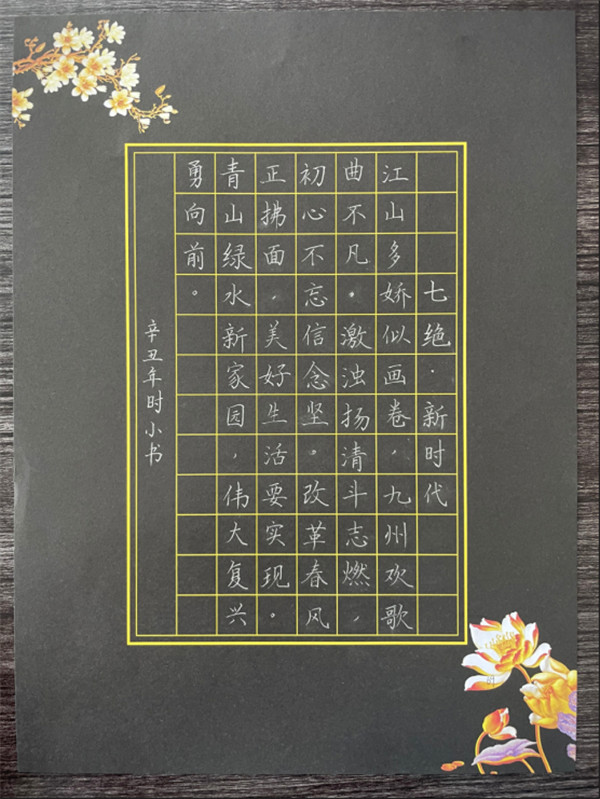 七绝·新时代
江山多娇似画卷，九州欢歌
曲不凡。激浊扬清斗志燃，
初心不忘信念坚。改革春风
正拂面，美好生活要实现。
青山绿水新家园，伟大复兴
勇向前。
辛丑年时小书